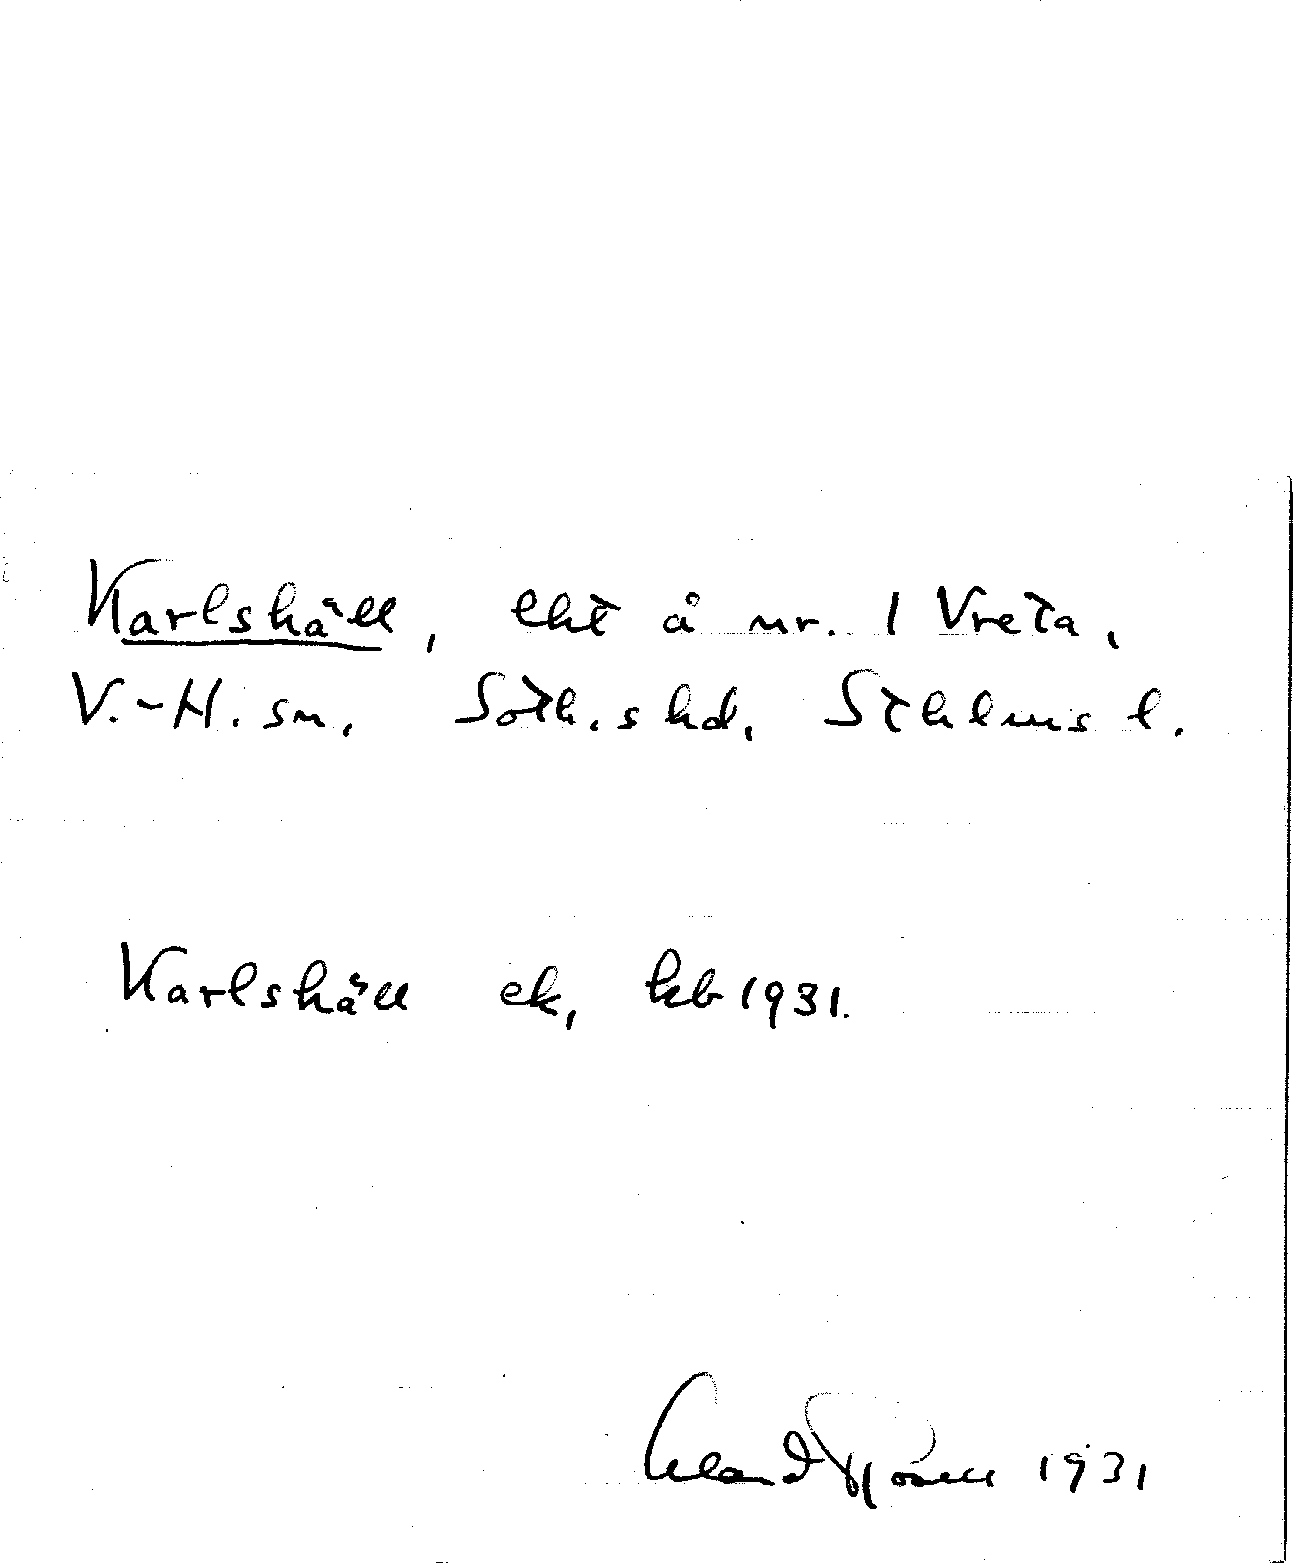 Karlshäll, lht å nr. 1 Vreta,
V.-H. sn, Soth.s hd, Sthlms l.
Karlshäll ek, kb 1931.
1931